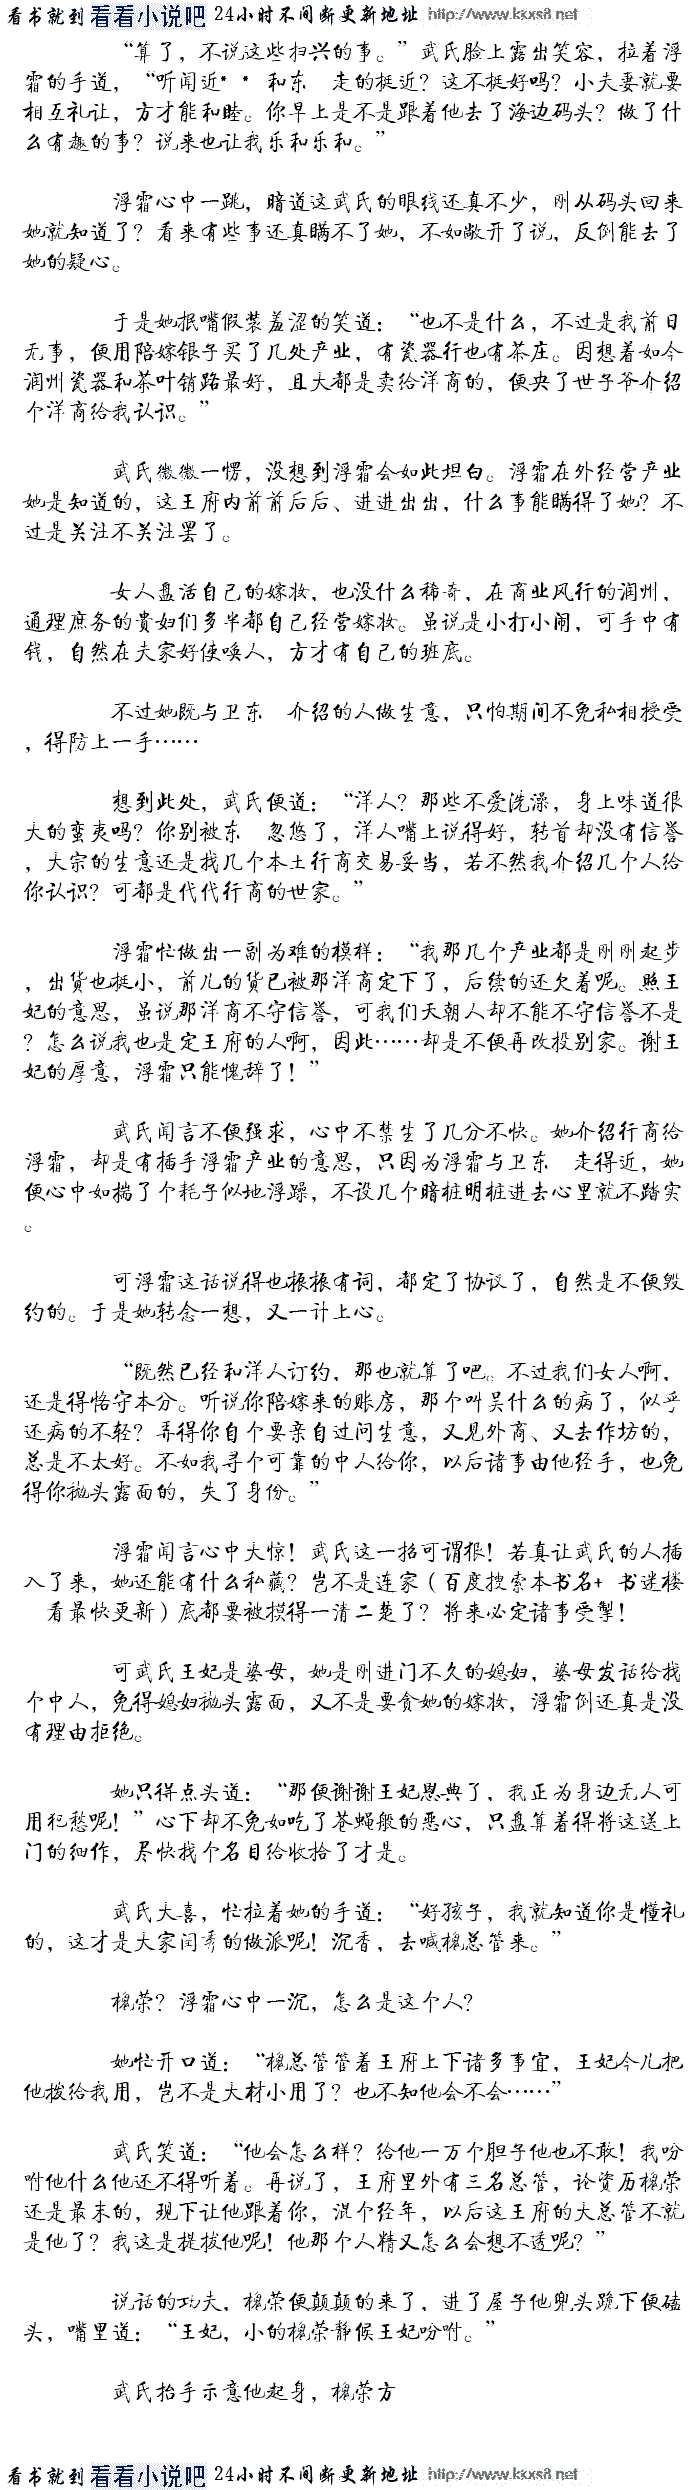 看书就到 看看小说吧 24小时不间断更新地址 http://www.kxxs8.net
“算了，不说这些扫兴的事。”武氏脸上露出笑容，拉着浮
霜的手道，“听闻近* * 和东　走的挺近？这不挺好吗？小夫妻就要
相互礼让，方才能和睦。你早上是不是跟着他去了海边码头？做了什
么有趣的事？说来也让我乐和乐和。”
浮霜心中一跳，暗道这武氏的眼线还真不少，刚从码头回来
她就知道了？看来有些事还真瞒不了她，不如敞开了说，反倒能去了
她的疑心。
于是她抿嘴假装羞涩的笑道：“也不是什么，不过是我前日
无事，便用陪嫁银子买了几处产业，有瓷器行也有茶庄。因想着如今
润州瓷器和茶叶销路最好，且大都是卖给洋商的，便央了世子爷介绍
个洋商给我认识。”
武氏微微一愣，没想到浮霜会如此坦白。浮霜在外经营产业
她是知道的，这王府内前前后后、进进出出，什么事能瞒得了她？不
过是关注不关注罢了。
女人盘活自己的嫁妆，也没什么稀奇，在商业风行的润州，
通理庶务的贵妇们多半都自己经营嫁妆。虽说是小打小闹，可手中有
钱，自然在夫家好使唤人，方才有自己的班底。
不过她既与卫东　介绍的人做生意，只怕期间不免私相授受
，得防上一手……
想到此处，武氏便道：“洋人？那些不爱洗澡，身上味道很
大的蛮夷吗？你别被东　忽悠了，洋人嘴上说得好，转首却没有信誉
，大宗的生意还是找几个本土行商交易妥当，若不然我介绍几个人给
你认识？可都是代代行商的世家。”
浮霜忙做出一副为难的模样：“我那几个产业都是刚刚起步
，出货也挺小，前儿的货已被那洋商定下了，后续的还欠着呢。照王
妃的意思，虽说那洋商不守信誉，可我们天朝人却不能不守信誉不是
？怎么说我也是定王府的人啊，因此……却是不便再改投别家。谢王
妃的厚意，浮霜只能愧辞了！”
武氏闻言不便强求，心中不禁生了几分不快。她介绍行商给
浮霜，却是有插手浮霜产业的意思，只因为浮霜与卫东　走得近，她
便心中如揣了个耗子似地浮躁，不设几个暗桩明桩进去心里就不踏实
。
可浮霜这话说得也振振有词，都定了协议了，自然是不便毁
约的。于是她转念一想，又一计上心。
“既然已经和洋人订约，那也就算了吧。不过我们女人啊，
还是得恪守本分。听说你陪嫁来的账房，那个叫吴什么的病了，似乎
还病的不轻？弄得你自个要亲自过问生意，又见外商、又去作坊的，
总是不太好。不如我寻个可靠的中人给你，以后诸事由他经手，也免
得你抛头露面的，失了身份。”
浮霜闻言心中大惊！武氏这一招可谓狠！若真让武氏的人插
入了来，她还能有什么私藏？岂不是连家（百度搜索本书名+ 书迷楼
看最快更新）底都要被摸得一清二楚了？将来必定诸事受掣！
可武氏王妃是婆母，她是刚进门不久的媳妇，婆母发话给找
个中人，免得媳妇抛头露面，又不是要贪她的嫁妆，浮霜倒还真是没
有理由拒绝。
她只得点头道：“那便谢谢王妃恩典了，我正为身边无人可
用犯愁呢！”心下却不免如吃了苍蝇般的恶心，只盘算着得将这送上
门的细作，尽快找个名目给收拾了才是。
武氏大喜，忙拉着她的手道：“好孩子，我就知道你是懂礼
的，这才是大家闺秀的做派呢！沉香，去喊槐总管来。”
槐荣？浮霜心中一沉，怎么是这个人？
她忙开口道：“槐总管管着王府上下诸多事宜，王妃今儿把
他拨给我用，岂不是大材小用了？也不知他会不会……”
武氏笑道：“他会怎么样？给他一万个胆子他也不敢！我吩
咐他什么他还不得听着。再说了，王府里外有三名总管，论资历槐荣
还是最末的，现下让他跟着你，混个经年，以后这王府的大总管不就
是他了？我这是提拔他呢！他那个人精又怎么会想不透呢？”
说话的功夫，槐荣便颠颠的来了，进了屋子他兜头跪下便磕
头，嘴里道：“王妃，小的槐荣静候王妃吩咐。”
武氏抬手示意他起身，槐荣方
看书就到 看看小说吧 24小时不间断更新地址 http://www.kxxs8.net